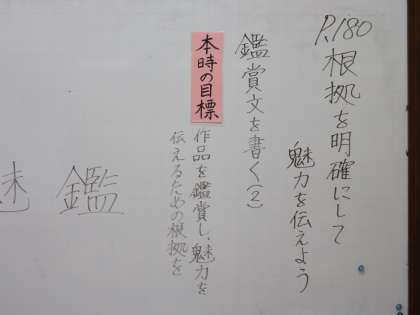 P.180
根拠を明確にして
魅力を伝えよう
鑑賞文を書く(2)
本時の目標
作品を鑑賞し、魅力を
伝えるための根拠を
鑑